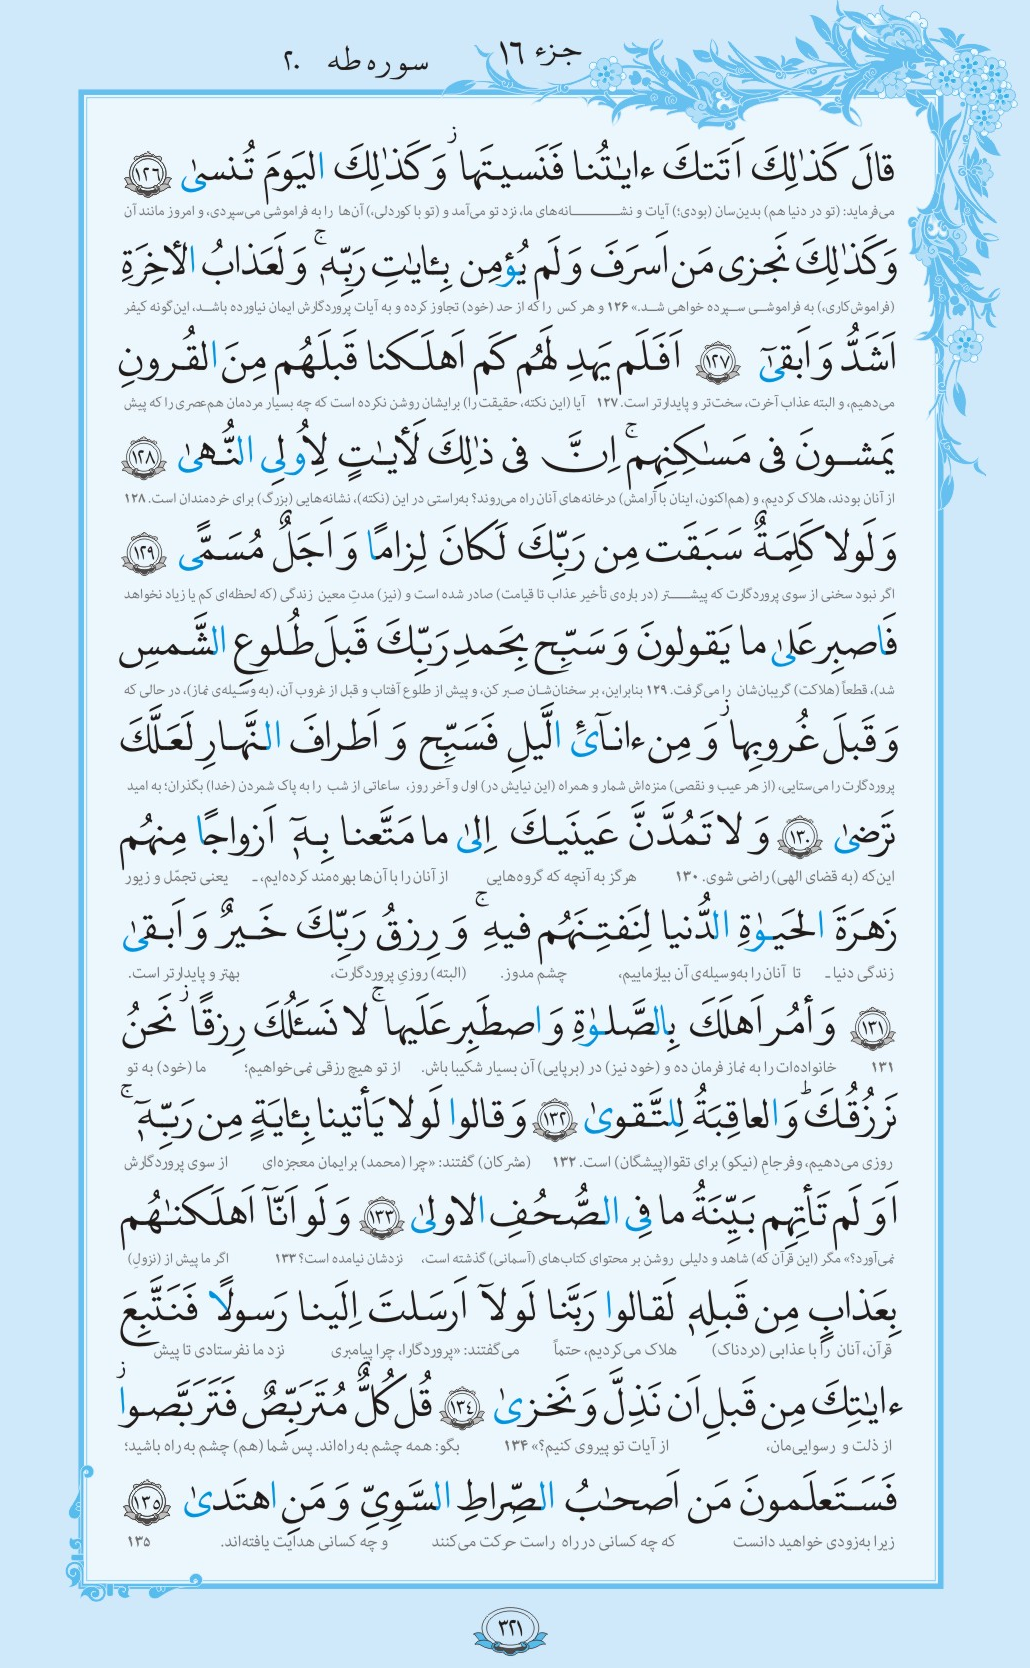 جزء ١٦
سوره طه ٢٠
قالَ كَذٰلِكَ اَتَتكَ ءایٰتُنا فَنَسیتَها ۖ وَ كَذٰلِكَ الیَومَ تُنسىٰ ﴿١٢٦﴾
می‌فرماید: (تو در دنیا هم) بدین‌سان (بودی؛) آیات و نشانه‌های ما، نزد تو می‌آمد و (تو با کوردلی،) آن‌ها را به فراموشی می‌سپردی، و امروز مانند آن
وَ كَذٰلِكَ نَجزی مَن اَسرَفَ وَ لَم یُؤمِن بِـٔایٰتِ رَبِّه ۚ وَ لَعَذابُ الـٔاخِرَةِ
(فراموش‌کاری،) به فراموشی سپرده خواهی شد.» ۱۲۶ و هر کس را که از حد (خود) تجاوز کرده و به آیات پروردگارش ایمان نیاورده باشد، این‌گونه کیفر
اَشَدُّ وَ اَبقىٰٓ ﴿١٢٧﴾ اَفَلَم یَهدِ لَهُم كَم اَهلَكنا قَبلَهُم مِنَ القُرونِ
می‌دهیم، و البته عذاب آخرت، سخت‌تر و پایدارتر است. ۱۲۷ آیا (این نکته، حقیقت را) برایشان روشن نکرده است که چه بسیار مردمان هم‌عصری را که پیش
یَمشونَ فی مَسٰكِنِهِم ۚ اِنَّ فی ذٰلِكَ لَأیٰتٍ لِاُولِی النُّهىٰ ﴿١٢٨﴾
از آنان بودند، هلاک کردیم، و (هم‌اکنون، اینان با آرامش) در خانه‌های آنان راه می‌روند؟ به‌راستی در این (نکته)، نشانه‌هایی (بزرگ) برای خردمندان است. ۱۲۸
وَ لَولا كَلِمَةٌ سَبَقَت مِن رَبِّكَ لَكانَ لِزامًا وَ اَجَلٌ مُسَمًّى ﴿١٢٩﴾
اگر نبود سخنی از سوی پروردگارت که پیشتر (در باره‌ی تأخیر عذاب تا قیامت) صادر شده است و (نیز) مدتِ معین زندگی (که لحظه‌ای کم یا زیاد نخواهد
فَاصبِر عَلىٰ ما یَقولونَ وَ سَبِّح بِحَمدِ رَبِّكَ قَبلَ طُلوعِ الشَّمسِ
شد)، قطعاً (هلاکت) گریبان‌شان را می‌گرفت. ۱۲۹ بنابراین، بر سخنان‌شان صبر کن، و پیش از طلوع آفتاب و قبل از غروب آن، (به وسیله‌ی نماز)، در حالی که
وَ قَبلَ غُروبِها ۖ وَ مِن ءانآئِ الَّیلِ فَسَبِّح وَ اَطرافَ النَّهارِ لَعَلَّكَ
پروردگارت را می‌ستایی، (از هر عیب و نقصی) منزه‌اش شمار و همراه (این نیایش در) اول و آخر روز، ساعاتی از شب را به پاک شمردن (خدا) بگذران؛ به امید
تَرضىٰ ﴿١٣٠﴾ وَ لا تَمُدَّنَّ عَینَیكَ اِلىٰ ما مَتَّعنا بِهٓ اَزواجًا مِنهُم
این‌که (به قضای الهی) راضی شوی. ۱۳۰ هرگز به آنچه که گروه‌هایی از آنان را با آن‌ها بهره‌مند کرده‌ایم، ـ یعنی تجمّل و زیور
زَهرَةَ الحَیوٰةِ الدُّنیا لِنَفتِنَهُم فیهِ ۚ وَ رِزقُ رَبِّكَ خَیرٌ وَ اَبقىٰ
زندگی دنیا ـ تا آنان را به‌وسیله‌ی آن بیازماییم، چشم مدوز. (البته) روزیِ پروردگارت، بهتر و پایدارتر است.
﴿١٣١﴾ وَ أمُر اَهلَكَ بِالصَّلوٰةِ وَ اصطَبِر عَلَیها ۚ لا نَسـَٔلُكَ رِزقًا ۖ نَحنُ
۱۳۱ خانواده‌ات را به نماز فرمان ده و (خود نیز) در (برپایی) آن بسیار شکیبا باش. از تو هیچ رزقی نمی‌خواهیم؛ ما (خود) به تو
نَرزُقُكَ ۗ وَ العاقِبَةُ لِلتَّقوىٰ ﴿١٣٢﴾ وَ قالوا لَولا یَأتینا بِـٔایَةٍ مِن رَبِّهٓ ۚ
روزی می‌دهیم، و فرجامِ (نیکو) برای تقوا(پیشگان) است. ۱۳۲ (مشرکان) گفتند: «چرا (محمد) برایمان معجزه‌ای از سوی پروردگارش
اَوَ لَم تَأتِهِم بَیِّنَةُ ما فِی الصُّحُفِ الاولىٰ ﴿١٣٣﴾ وَ لَو اَنّآ اَهلَكنٰهُم
نمی‌آورد؟» مگر (این قرآن که) شاهد و دلیلی روشن بر محتوای کتاب‌های (آسمانی) گذشته است، نزدشان نیامده است؟ ۱۳۳ اگر ما پیش از (نزولِ)
بِعَذابٍ مِن قَبلِه لَقالوا رَبَّنا لَولآ اَرسَلتَ اِلَینا رَسولًا فَنَتَّبِعَ
قرآن، آنان را با عذابی (دردناک) هلاک می‌کردیم، حتماً می‌گفتند: «پروردگارا، چرا پیامبری نزد ما نفرستادی تا پیش
ءایٰتِكَ مِن قَبلِ اَن نَذِلَّ وَ نَخزىٰ ﴿١٣٤﴾ قُل كُلٌّ مُتَرَبِّصٌ فَتَرَبَّصوا ۖ
از ذلت و رسوایی‌مان، از آیات تو پیروی کنیم؟» ۱۳۴ بگو: همه چشم به راه‌اند. پس شما (هم) چشم به راه باشید؛
فَسَتَعلَمونَ مَن اَصحٰبُ الصِّراطِ السَّوِیِّ وَ مَنِ اهتَدىٰ ﴿١٣٥﴾
زیرا به‌زودی خواهید دانست که چه کسانی در راه راست حرکت می‌کنند و چه کسانی هدایت یافته‌اند. ۱۳۵
٣٢١